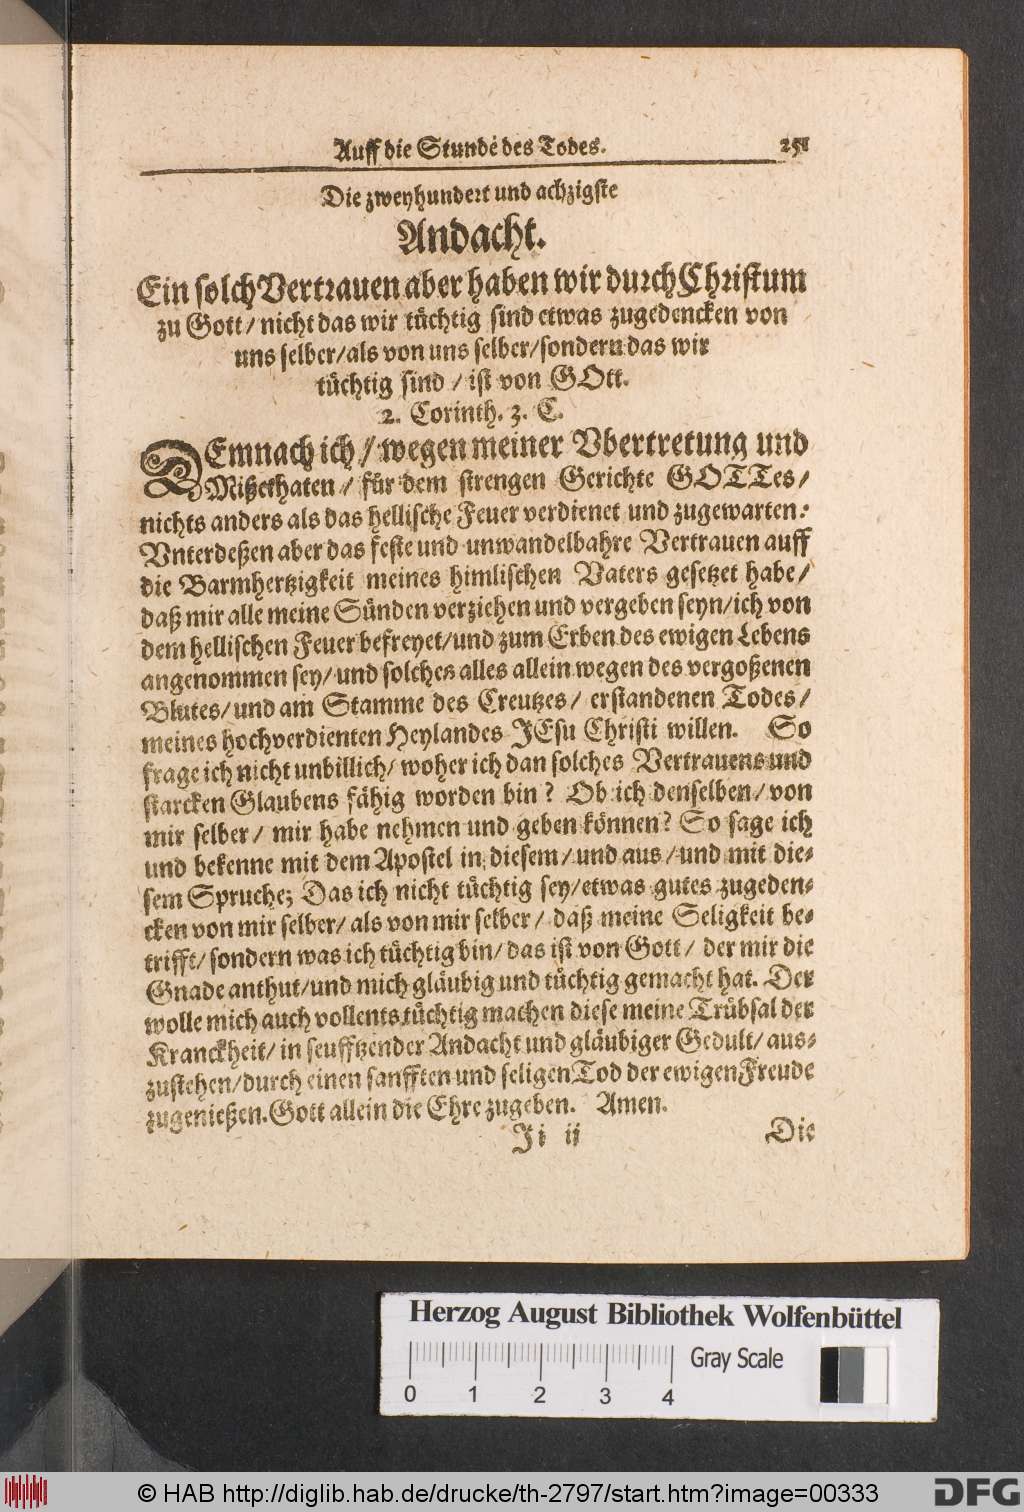 Auff die Stunde des Todes. 251
Die zweyhundert und achzigste
Andacht.
Ein solch Vertrauen aber haben wir durch Christum
zu Gott / nicht das wir tüchtig sind etwas zugedencken von
uns selber / als von uns selber / sondern das wir
tüchtig sind / ist von GOtt.
2. Corinth. 3. C.
DEmnach ich / wegen meiner Vbertretung und
Mißethaten / für dem strengen Gerichte GOTTes /
nichts anders als das hellische Feuer verdienet und zugewarten:
Vnterdeßen aber das feste und unwandelbahre Vertrauen auff
die Barmhertzigkeit meines himlischen Vaters gesetzet habe /
daß mir alle meine Sünden verziehen und vergeben seyn / ich von
dem hellischen Feuer befreyet / und zum Erben des ewigen Lebens
angenommen sey / und solches alles allein wegen des vergoßenen
Blutes / und am Stamme des Creutzes / erstandenen Todes /
meines hochverdienten Heylandes JEsu Christi willen. So
frage ich nicht unbillich / woher ich dan solches Vertrauens und
starcken Glaubens fähig worden bin? Ob ich denselben / von
mir selber / mir habe nehmen und geben können? So sage ich
und bekenne mit dem Apostel in diesem / und aus / und mit die-
sem Spruche; Das ich nicht tüchtig sey / etwas gutes zugeden-
cken von mir selber / als von mir selber / daß meine Seligkeit be-
trifft / sondern was ich tüchtig bin / das ist von Gott / der mir die
Gnade anthut / und mich gläubig und tüchtig gemacht hat. Der
wolle mich auch vollents tüchtig machen diese meine Trübsal der
Kranckheit / in seufftzender Andacht und gläubiger Gedult / aus-
zustehen / durch einen sanfften und seligen Tod der ewigen Freude
zugenießen. Gott allein die Ehre zugeben. Amen.
Ji ii Die
Herzog August Bibliothek Wolfenbüttel
Gray Scale
0 1 2 3 4
© HAB http://diglib.hab.de/drucke/th-2797/start.htm?image=00333
DFG